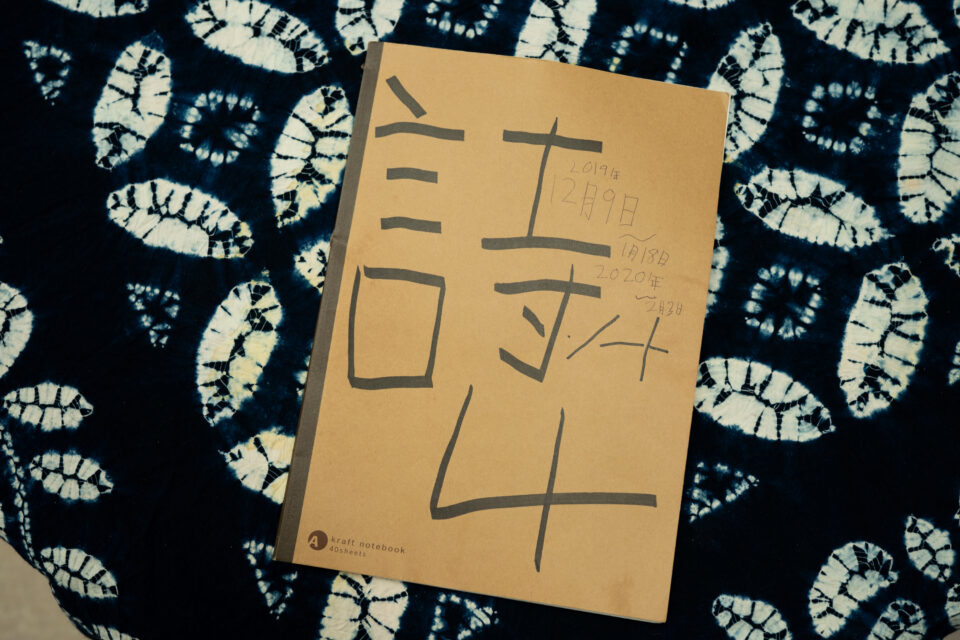 詩
4
2019年
12月9日
〜
1月18日
2020年
〜2月3日
A kraft notebook
40sheets